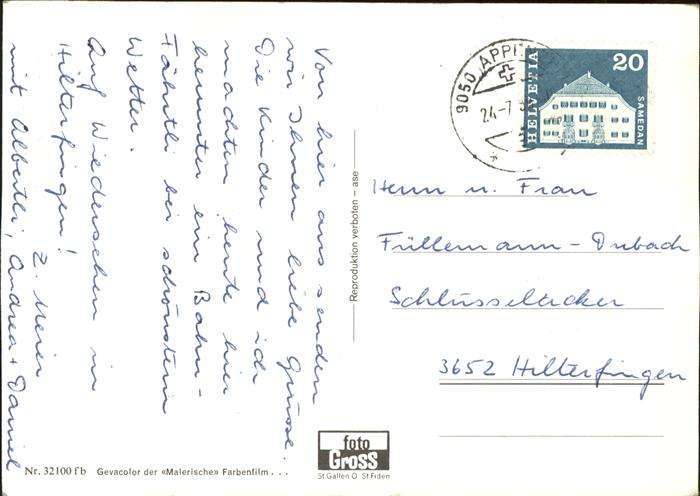 Von hier aus senden
wir Ihnen liebe Grüsse.
Die Kinder und ich
machten heute hier
herunter ein Bahn-
Fährtli bei schönstem
Wetter.
Auf Wiedersehen in
Hilterfingen!
Z. Meier
mit Albertli, Andrea + Daniel
Reproduktion verboten – ase
9050 APP
24.-7
HELVETIA
20
SAMEDAN
Herrn u. Frau
Füllemann-Dubach
Schlüsselacker
3652 Hilterfingen
foto
Gross
St Gallen O St Fiden
Nr. 32100 fb Gevacolor der «Malerische» Farbenfilm . . .